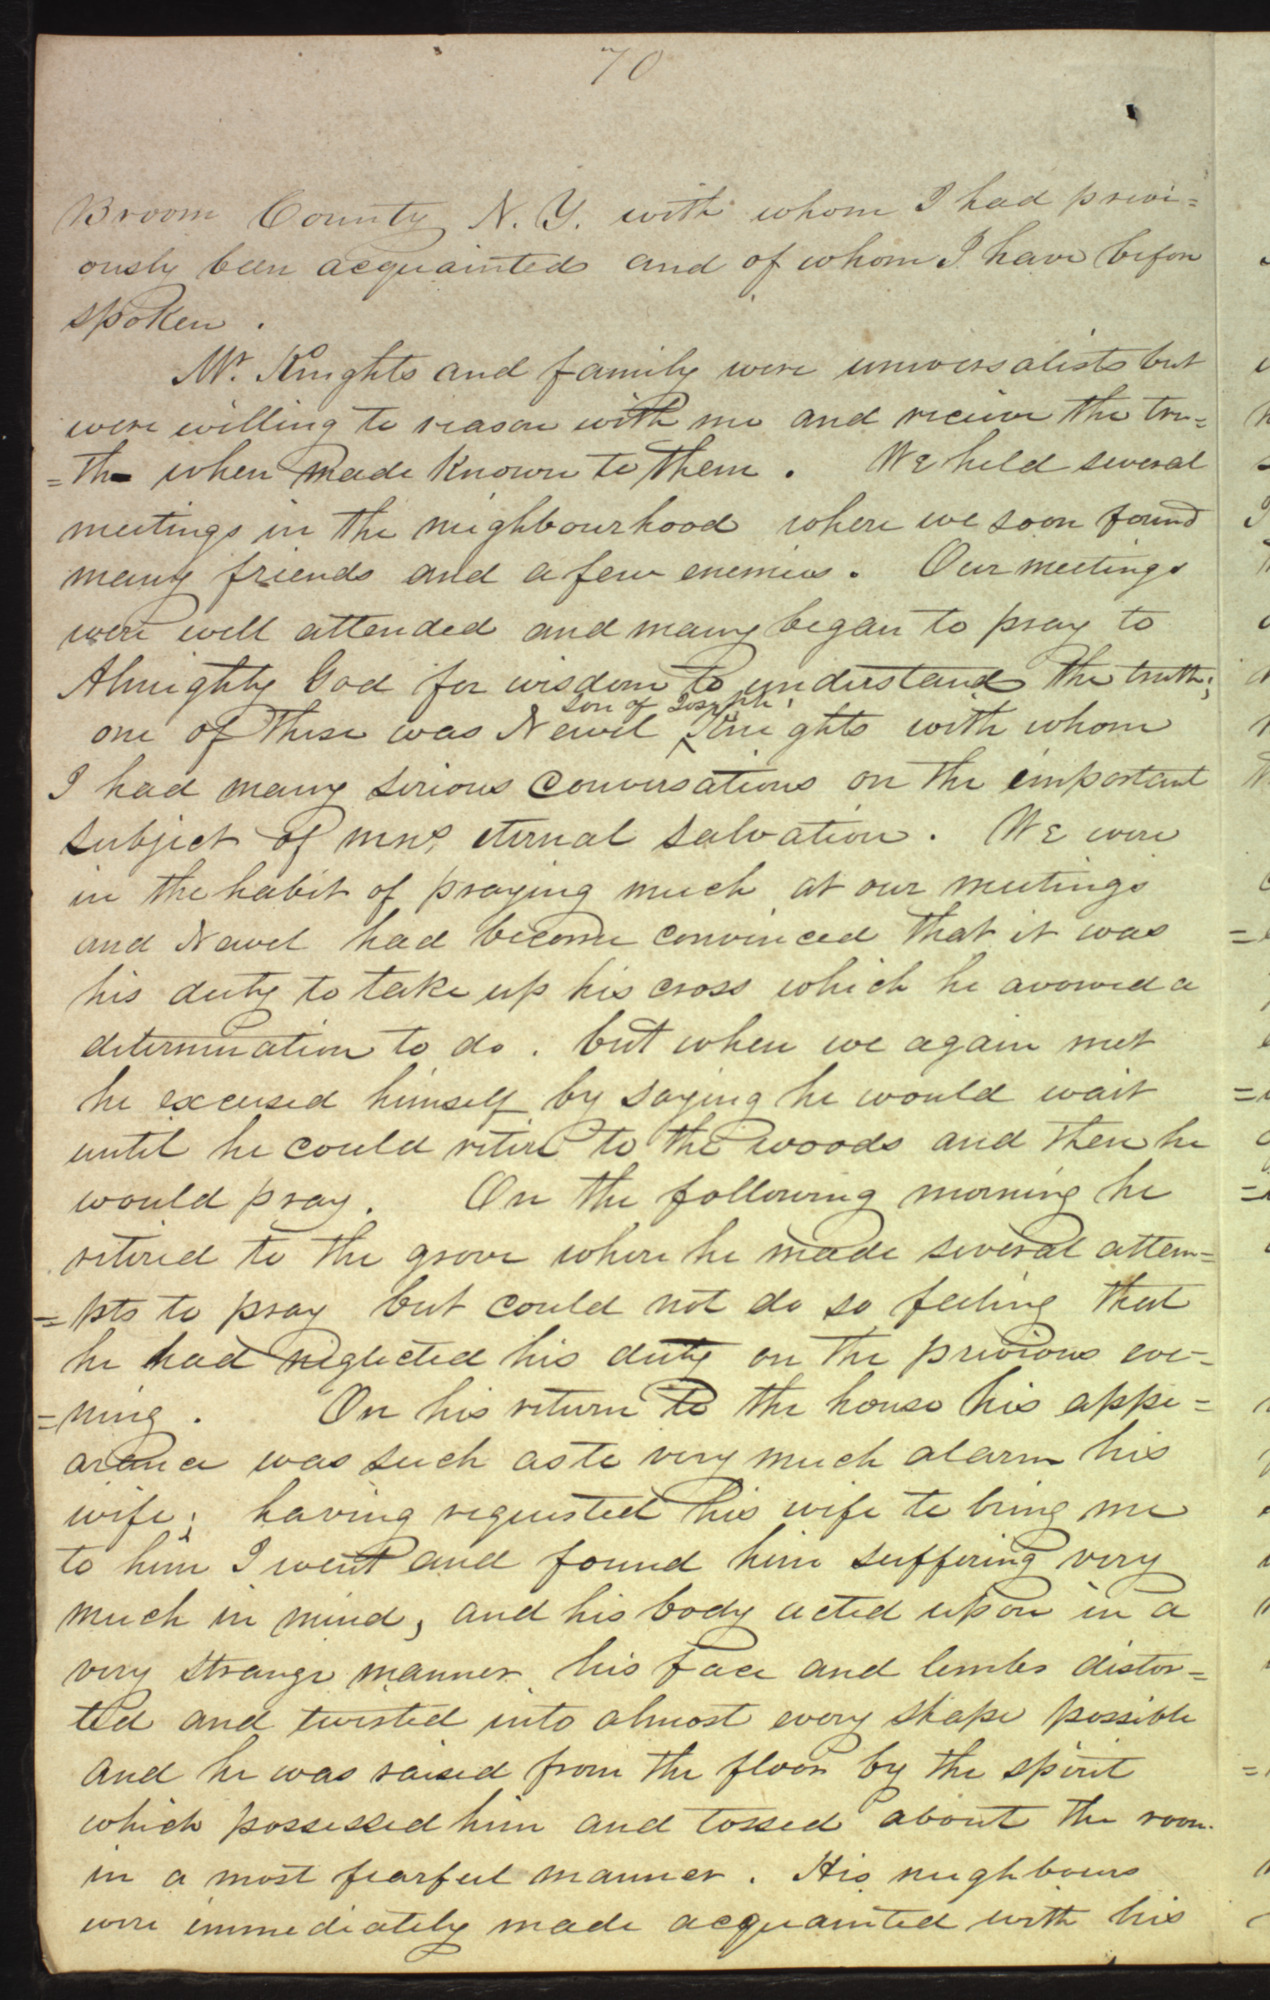 70
Broom County N. Y. with whom I had previ=
ously been acquainted and of whom I have before
spoken.
Mr. Knights and family were universalists but
were willing to reason with me and recieve the tru=
=th when made known to them. We held several
meetings in the neighbourhood where we soon found
many friends and a few enemies. Our meetings
were well attended and many began to pray to
Almighty God for wisdom to understand the truth;
son of Joseph,
one of these was Newel Knights with whom
I had many serious conversations on the important
subject of mns, eternal salvation. We were
in the habit of praying much at our meetings
and Newel had become convinced that it was
his duty to take up his cross which he avowed a
determination to do. but when we again met
he excused himself by saying he would wait
until he could retire to the woods and then he
would pray. On the following morning he
retired to the grove where he made several attem=
=pts to pray but could not do so feeling that
he had neglected his duty on the previous eve=
=ning. On his return to the house his appe=
arance was such as to very much alarm his
wife; having requested his wife to bring me
to him I went and found him suffering very
much in mind, and his body acted upon in a
very strange manner, his face and limbs distor=
ted and twisted into almost every shape possible
and he was raised from the floor by the spirit
which possessed him and tossed about the room
in a most fearful manner. His neighbours
were immediately made acquainted with his